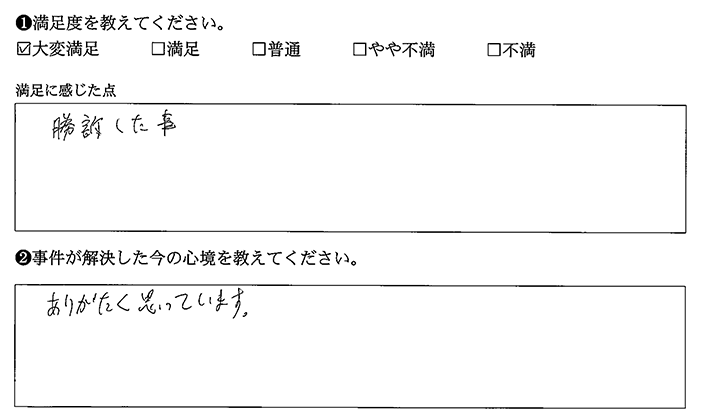 ❶満足度を教えてください。
☑大変満足 □満足 □普通 □やや不満 □不満
満足に感じた点
勝訴した事
❷事件が解決した今の心境を教えてください。
ありがたく思っています。